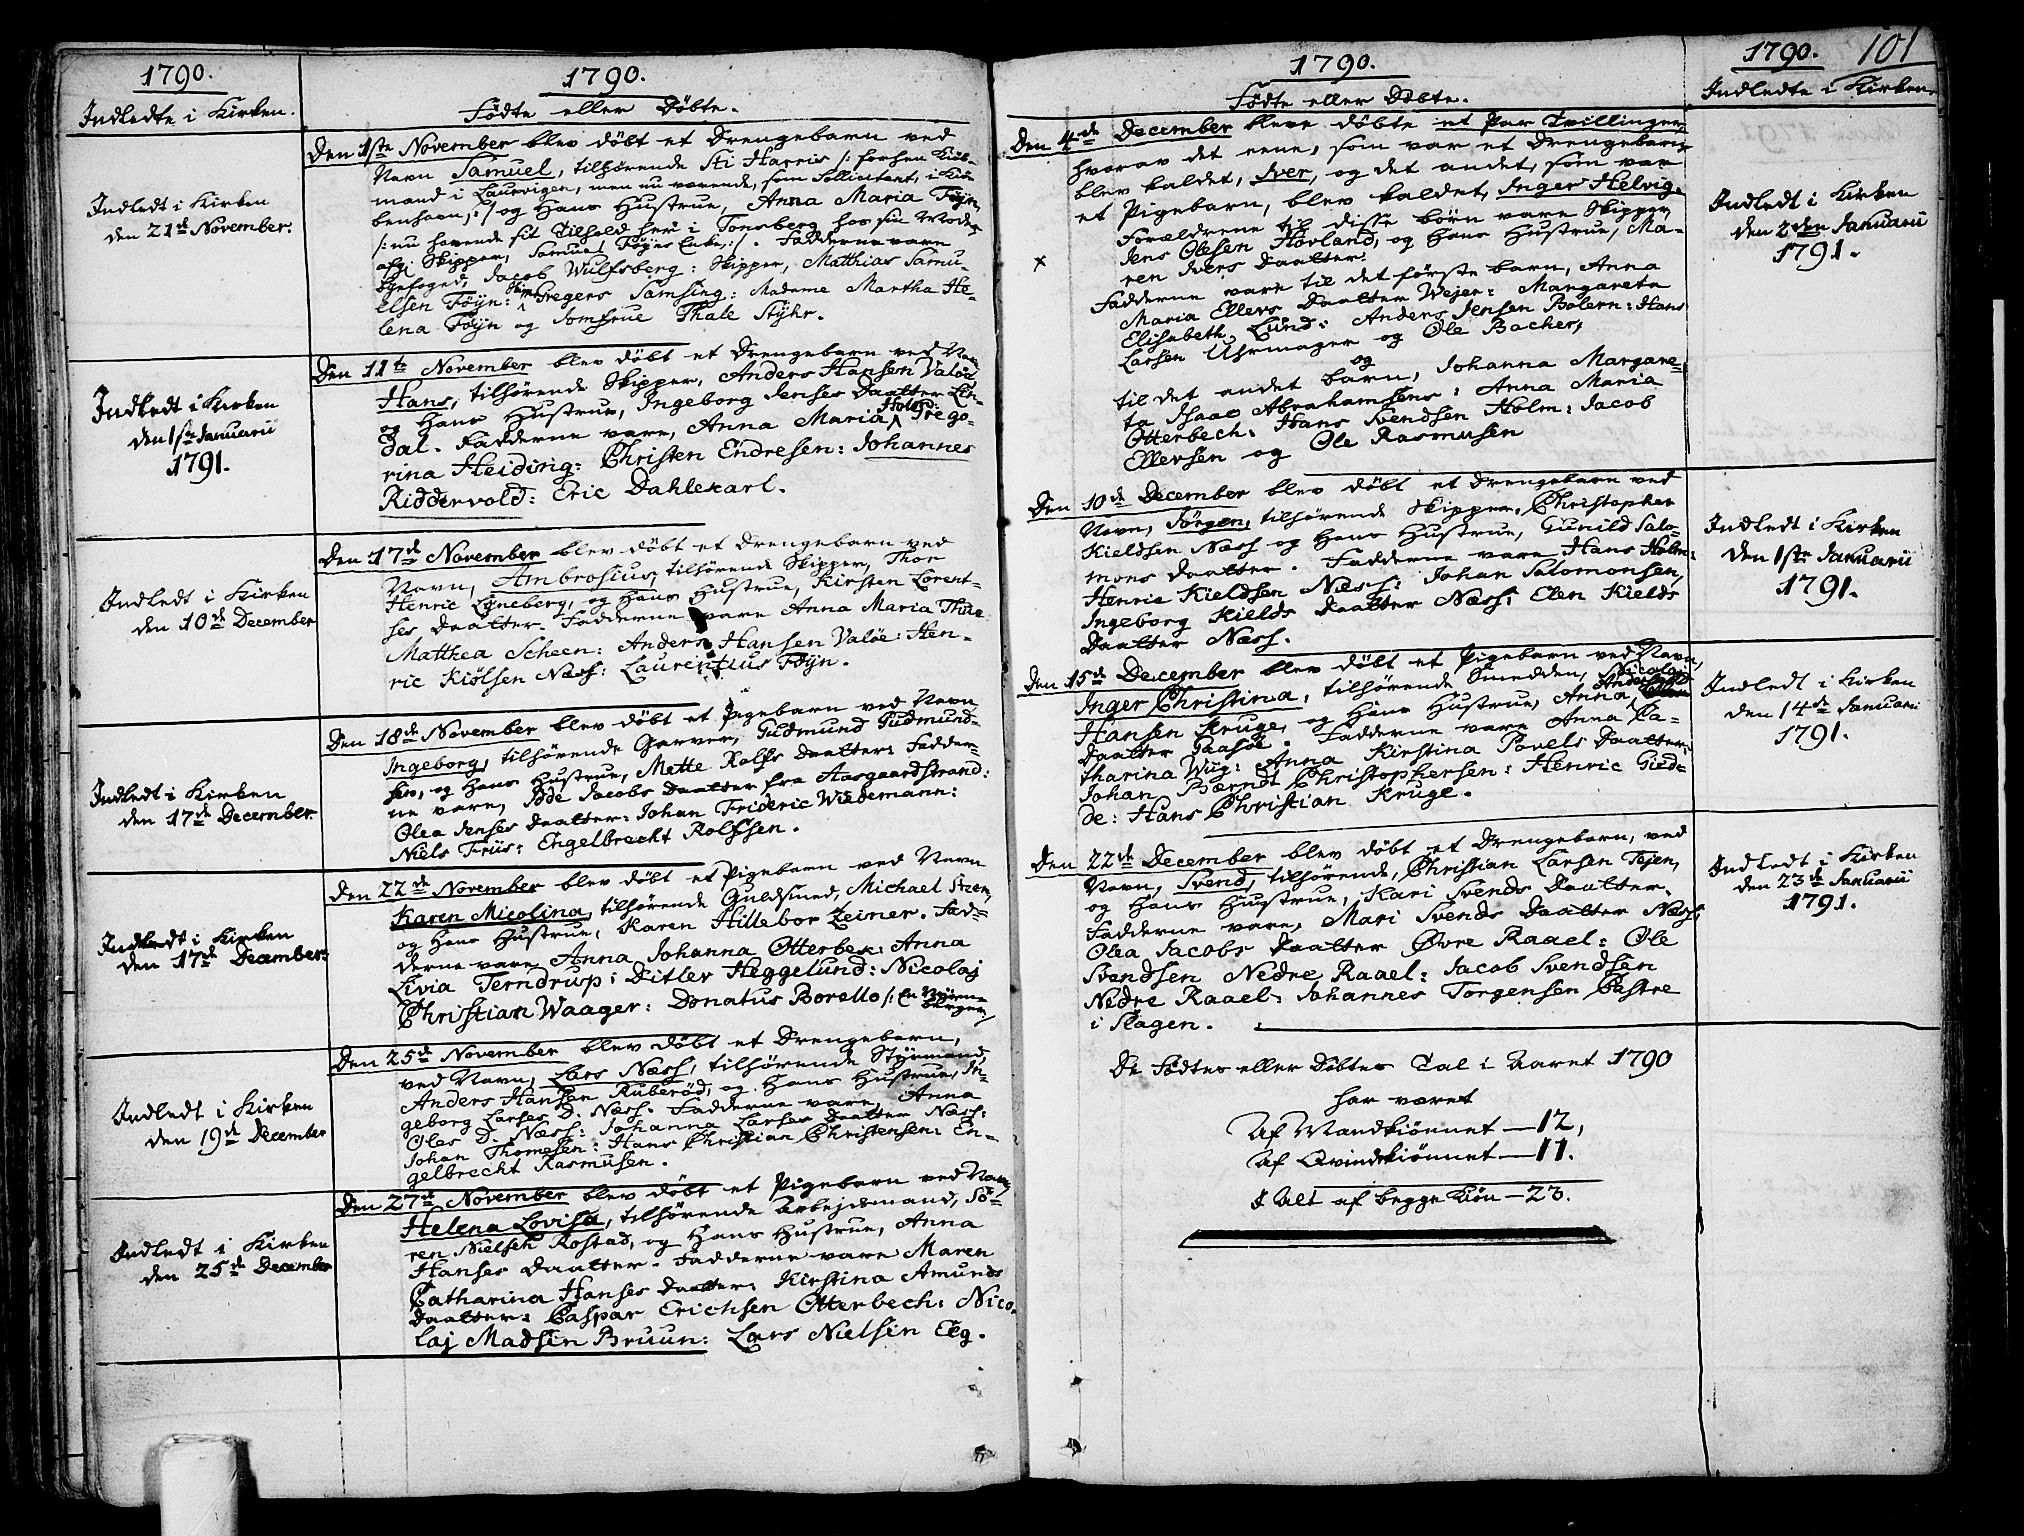 1790.
Indledte i Kirken.
1790.
Födte eller Döbte.
Indledt i Kirken
den 21de November.
Den 1ste November blev döbt et Drengebarn ved
Navn Samuel, tilhörende Sti Harris /: forhen Kiöb-
mand i Laurvigen, men nu værende, som Sollicitant, i Kiö-
benhavn, :/ og Hans Hustrue, Anna Maria Föyn,
/: nu havende sit Tilhold her i Tonsberg hos sin Moder,
afg: Skipper, Samuel Föyns Enke, :/. Fadderne vare
Byefoged, Jacob Wulfsberg: Skipper, Matthias Samu-
elsen Föyn: Gregers Samsing: Madame Martha He-
lena Föyn og Jomfrue Thale Styhr.
Indledt i Kirken
den 1ste Januarii
1791.
Den 11te November blev döbt et Drengebarn ved Navn
Hans, tilhörende Skipper, Anders Hansen Valöe
og Hans Hustrue, Ingeborg Jenses Daatter Lin-
dal. Fadderne vare, Anna Maria Holst Grego-
rina Heiding: Christen Endresen: Johannes
Riddervold: Eric Dahlekarl.
Indledt i Kirken
den 10de December
Den 17de November blev döbt et Drengebarn ved
Navn, Ambrosius, tilhörende Skipper, Thor
Henric Lyneberg, og Hans Hustrue, Kirsten Lorent-
ses Daatter. Fadderne vare Anna Maria Thue
Matthea Scheen: Anders Hansen Valöe: Hen-
ric Kiölsen Næss: Laurentius Föyn.
Indledt i Kirken
den 17de December.
Den 18de November blev döbt et Pigebarn ved Navn
Ingeborg, tilhörende Garver, Gudmund Gudmund-
sen, og Hans Hustrue, Mette Rolfs Daatter: Fadder-
ne vare, Jacobs Daatter fra Aasgaardstrand:
Olea Jenses Daatter: Johan Frideric Wiedemann:
Niels Früs: Engelbrecht Rolfsen.
Indledt i Kirken
den 17de December:
Den 22de November blev döbt et Pigebarn ved Navn
Karen Micolina, tilhörende Guldsmed, Michael Steen,
og Hans Hustrue, Karen Hillebor Zeiner. Fad-
derne vare, Anna Johanna Otterbek: Anna
Livia Terndrup: Ditlev Heggelund: Nicolaj
Christian Waager: Donatus Borello /: En Nörn-
berger :/
Indledt i Kirken
den 19de December
Den 25de November blev döbt et Drengebarn,
ved Navn, Lars Næss, tilhörende Styrmand,
Anders Hansen Ruberöd, og Hans Hustrue, In-
geborg Larses D. Næss. Fadderne vare, Anna
Oles D. Næss: Johanna Larses Daatter Næss:
Johan Thomesen: Hans Christian Christensen: En-
gelbrecht Rasmusen.
Indledt i Kirken
den 25de December
Den 27de November blev döbt et Pigebarn ved Navn
Helena Lovisa, tilhörende Arbejdsmand, Sö-
ren Nielsen Rostad, og Hans Hustrue, Anna
Hanses Daatter. Fadderne vare Maren
Catharina Hanses Daatter: Kirstina Amunds
Daatter: Caspar Erichsen Otterbech: Nico-
laj Madsen Bruun: Lars Nielsen Eeg.
1790.
Födte eller Döbte.
1790. 101
Indledte i Kirken.
Den 4de December bleve döbte et Par Tvillinger,
hvorav det eene, som var et Drengebarn
blev kaldet, Iver, og det andet, som var
et Pigebarn, blev kaldet, Inger Helvig.
Forældrene til disse börn vare Skipper,
Jens Olesen Hovland, og Hans Hustrue, Ma-
ren Ivers Daatter.
Fadderne vare til det förste barn, Anna
Maria Ellers Daatter Wejer: Margareta
Elisabeth Lünd: Anders Jensen Bolern: Hans
Larsen Uhrmager og Ole Bacher,
og
til det andet barn, Johanna Margare-
ta Isaac Abrahamsens: Anna Maria
Otterbech: Hans Svendsen Holm: Jacob
Ellevsen og Ole Rasmusen
x
Indledt i Kirken
den 2den Januarii
1791.
Den 10de December blev döbt et Drengebarn ved
Navn, Jörgen, tilhörende Skipper, Christopher
Kieldsen Næss og Hans Hustrue, Gunild Salo-
mons Daatter. Fadderne vare Hans Holm:
Henric Kieldsen Næss: Johan Salomonsen,
Ingeborg Kields Daatter Næss: Elen Kields
Daatter Næss.
Indledt i Kirken
den 1ste Januarii
1791.
Den 15de December blev döbt et Pigebarn ved Navn,
Inger Christina, tilhörende Smedden, Nicolaj
Hansen Kruge, og Hans Hustrue, Anna Anders
Daatter Gaasöe. Fadderne vare Anna Ca-
tharina Wüg: Anna Kirstina Povels Daatter:
Johan Bærndt Christophersen: Henric Gied-
de: Hans Christian Kruge.
Indledt i Kirken
den 14de Januarii
1791.
Den 22de December blev döbt et Drengebarn, ved
Navn, Svend, tilhörende, Christian Larsen Tejen,
og Hans Hustrue, Kari Svends Daatter.
Fadderne vare, Mari Svends Daatter Næss:
Olea Jacobs Daatter Övre Raael: Ole
Svendsen Nedre Raael: Jacob Svendsen
Nedre Raael: Johannes Torgensen Castre
i Slagen.
Indledt i Kirken
den 23de Januarii
1791.
De Födtes eller Döbtes Tal i Aaret 1790
har været
Af Mandkiönnet — 12,
Af Qvindekiönnet — 11.
I Alt af begge Kiön — 23.